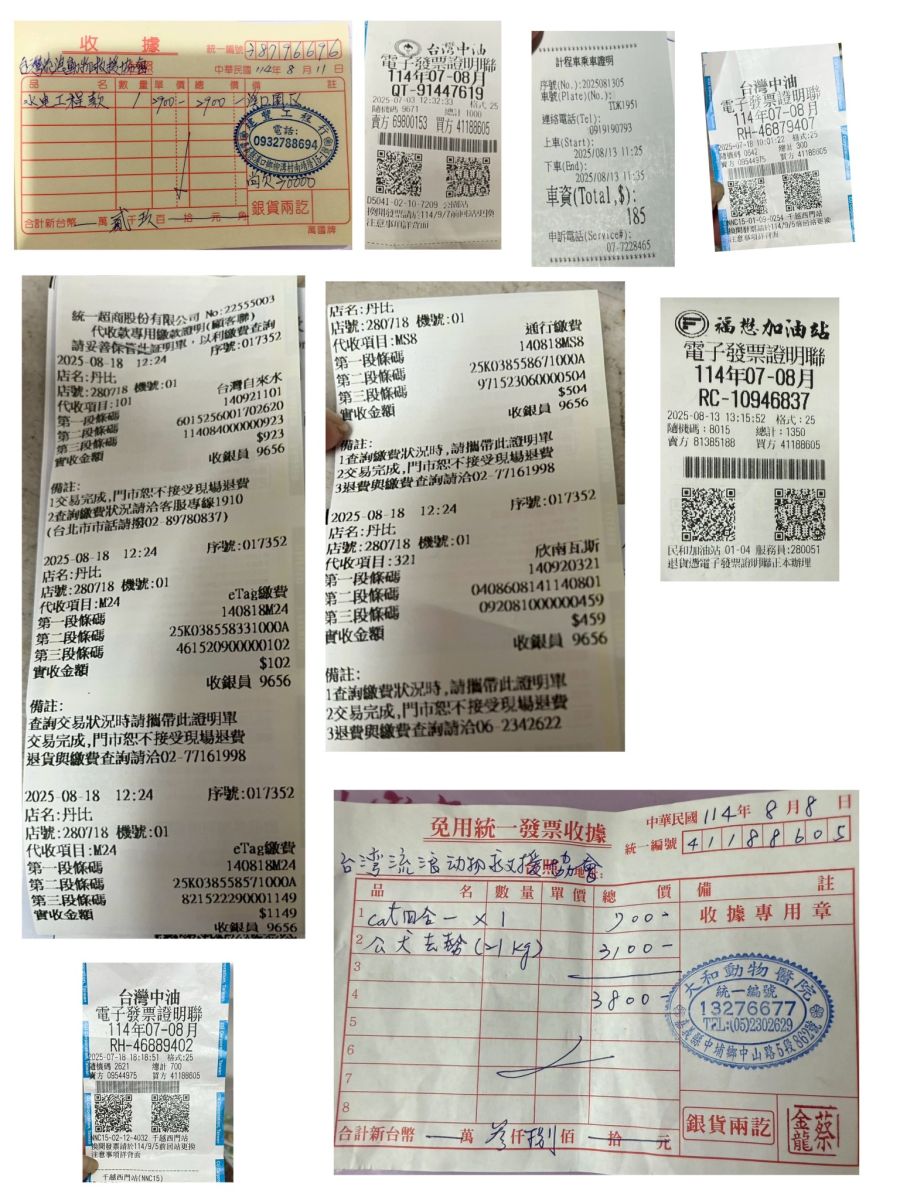 收據
統一編號 38796696
台灣流浪動物救援協會
中華民國 114年 8 月 11 日
品名 數量 單價 總價 備註
水電工程款 1 2900- 2900-
建豐工程行
電話:
0932788694
合計新台幣 萬 貳仟 玖百 拾 元 角
銀貨兩訖
萬國牌
台灣中油
電子發票證明聯
114年07-08月
QT-91447619
2025-07-03 12:32:33 格式 25
隨機碼 9671 總計 1000
賣方 69800153 買方 41188605
D5041-02-10-7209 公園站
換開發票請於114/9/7前回站更換
注意事項詳背面
計程車乘車證明
序號(No.):2025081305
車號(Plate)(No.):
TDK1951
連絡電話(Tel):
0919190793
上車(Start):
2025/08/13 11:25
下車(End):
2025/08/13 11:35
車資(Total,$):
185
申訴電話(Service#):
07-7228465
台灣中油
電子發票證明聯
114年07-08月
RH-46879407
2025-07-18 10:01:22 格式:25
隨機碼 0642 總計 300
賣方 09544975 買方 41188605
NNC15-01-09-0254 千越西門站
換開發票請於114/9/5前回站更換
注意事項詳背面
統一超商股份有限公司 No:22555003
代收款專用繳款證明(顧客聯)
請妥善保管此證明單,以利繳費查詢
2025-08-18 12:24 序號:017352
店名:丹比
店號:280718 機號:01
代收項目:101 台灣自來水
第一段條碼 140921101
第二段條碼 6015256001702620
第三段條碼 114084000000923
實收金額 $923
收銀員 9656
備註:
1交易完成,門市恕不接受現場退費
2查詢繳費狀況請洽客服專線1910
(台北市市話請撥02-89780837)
2025-08-18 12:24 序號:017352
店名:丹比
店號:280718 機號:01
代收項目:M24 eTag繳費
第一段條碼 140818M24
第二段條碼 25K038558331000A
第三段條碼 461520900000102
實收金額 $102
收銀員 9656
備註:
查詢交易狀況時請攜帶此證明單
交易完成,門市恕不接受現場退費
退貨與繳費查詢請洽02-77161998
2025-08-18 12:24 序號:017352
店名:丹比
店號:280718 機號:01
代收項目:M24 eTag繳費
第一段條碼 140818M24
第二段條碼 25K038558571000A
第三段條碼 821522290001149
實收金額 $1149
收銀員 9656
店名:丹比
店號:280718 機號:01
代收項目:MS8 通行繳費
第一段條碼 140818MS8
第二段條碼 25K038558671000A
第三段條碼 971523060000504
實收金額 $504
收銀員 9656
備註:
1查詢繳費狀況時,請攜帶此證明單
2交易完成,門市恕不接受現場退費
3退費與繳費查詢請洽02-77161998
2025-08-18 12:24 序號:017352
店名:丹比
店號:280718 機號:01
代收項目:321 欣南瓦斯
第一段條碼 140920321
第二段條碼 0408608141140801
第三段條碼 092081000000459
實收金額 $459
收銀員 9656
備註:
1查詢繳費狀況時,請攜帶此證明單
2交易完成,門市恕不接受現場退費
3退費與繳費查詢請洽06-2342622
福懋加油站
電子發票證明聯
114年07-08月
RC-10946837
2025-08-13 13:15:52 格式:25
隨機碼:8015 總計:1350
賣方 81385188 買方 41188605
民和加油站 01-04 服務員:280051
退貨憑電子發票證明聯正本辦理
台灣中油
電子發票證明聯
114年07-08月
RH-46889402
2025-07-18 18:18:51 格式:25
隨機碼 2621 總計 700
賣方 09544975 買方 41188605
NNC15-02-12-4032 千越西門站
換開發票請於114/9/5前回站更換
注意事項詳背面
千越西門站(NNC15)
免用統一發票收據
中華民國 114年 8 月 8 日
統一編號 41188605
台湾流浪动物救援協會
品名 數量 單價 總價 備註
1 cat四合一 x 1 700-
收據專用章
2 公犬去勢(21kg) 3100-
3
4 3800-
5
6
7
8
太和動物醫院
統一編號
13276677
TEL:(05)2302629
嘉義縣中埔鄉中山路5段869號
合計新台幣 萬 叁仟 捌佰 拾 元
銀貨兩訖
蔡金龍